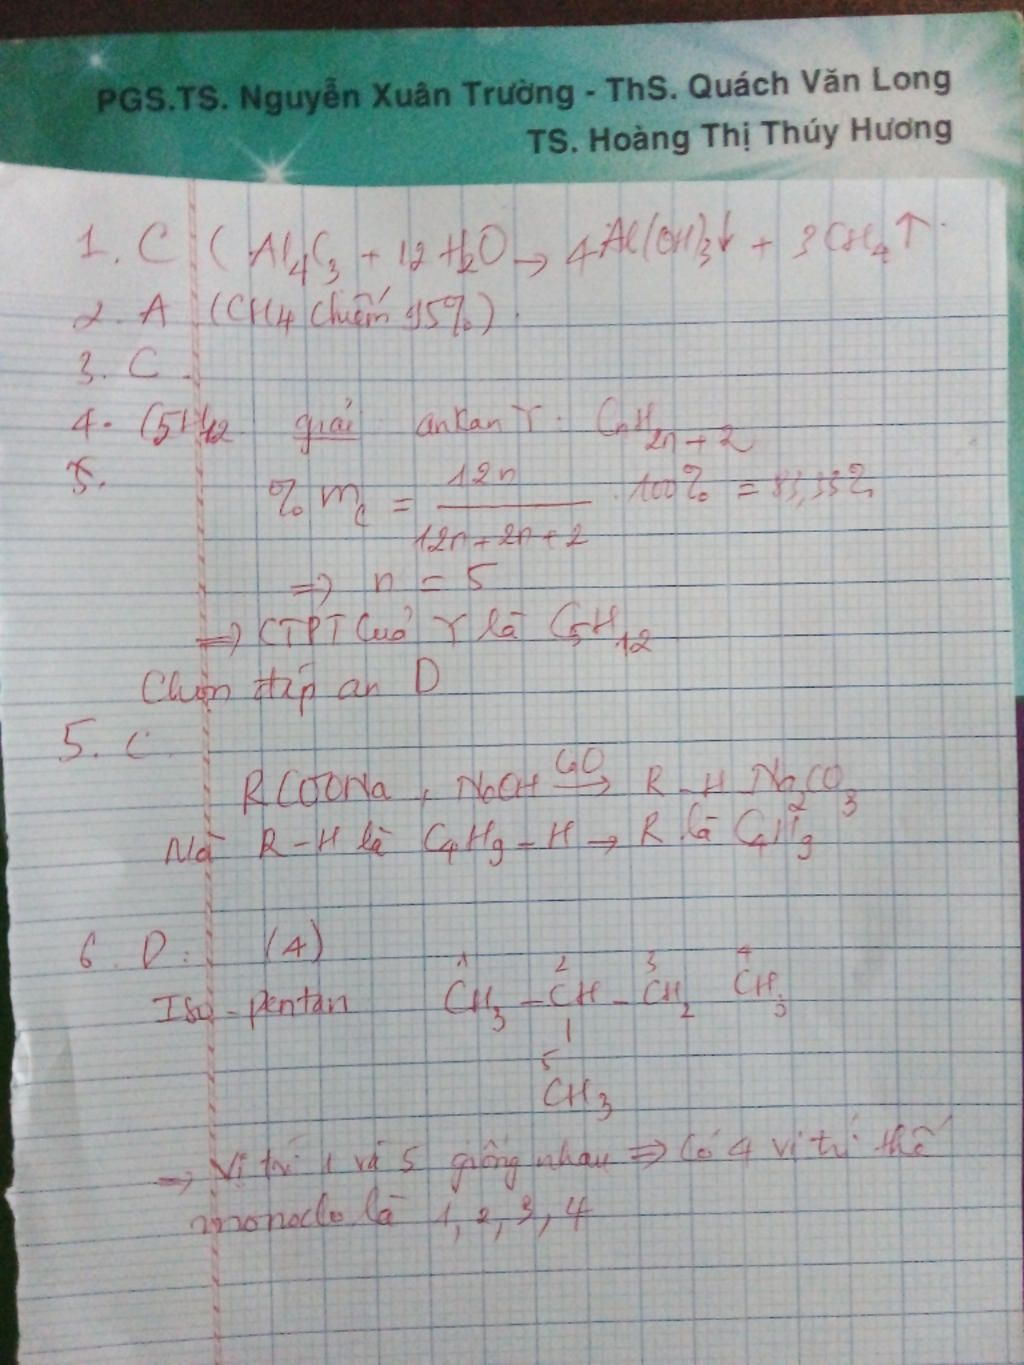 PGS.TS. Nguyễn Xuân Trường - ThS. Quách Văn Long
TS. Hoàng Thị Thúy Hương
1. C ( Al4C3 + 12 H2O → 4Al(OH)3↓ + 3CH4↑.
2. A (CH4 chiếm 95%).
3. C
4. C5H12 giải ankan Y: CnH2n+2
5.
% mC = 12n / 12n+2n+2 . 100% = 83,33%
⇒ n = 5
⇒ CTPT của Y là C5H12
Chọn đáp an D
5. C
RCOONa, NaOH CaO→ R-H Na2CO3
Mà R-H là C4H9-H → R là C4H9
6. D: (4)
1 2 3 4
Iso-pentan CH3-CH-CH2 CH3
5
CH3
⇒ Vị trí 1 và 5 giống nhau ⇒ Có 4 vị trí thế
monoclo là 1, 2, 3, 4